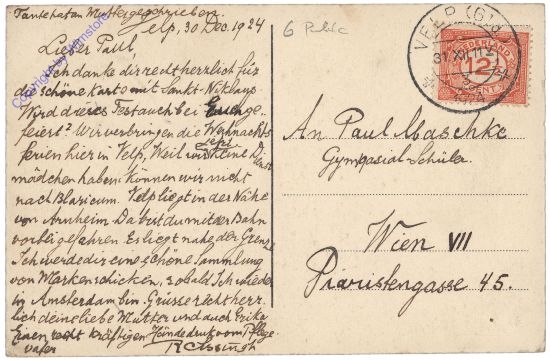 Tante hat an Mutter geschrieben.
Velp, 30 Dec. 1924
Lieber Paul,
Ich danke dir recht herzlich für
die schöne Karte mit Sankt-Niklaus
Wird dieses Fest auch bei Euch ge-
feiert? Wir verbringen die Weihnachts
ferien hier in Velp, Weil wir keine Dienst
jetzt
mädchen haben können wir nicht
nach Blaricum. Velp liegt in der Nähe
von Arnheim Da bist du mit der Bahn
vorbei gefahren Es liegt nahe der Grenze
Ich werde dir eine schöne Sammlung
von Marken schicken, sobald Ich wieder
in Amsterdam bin. Grüsse recht herz-
lich deine liebe Mutter und auch Erika
Einen recht kräftigen Händedruck vom Pflege
vater
6 Public
VELP (G)
31 XII
1924
NEDERLAND
12½
CENT
An Paul Maschke
Gymnasial-Schüler
Wien VII
Piaristengasse 45.